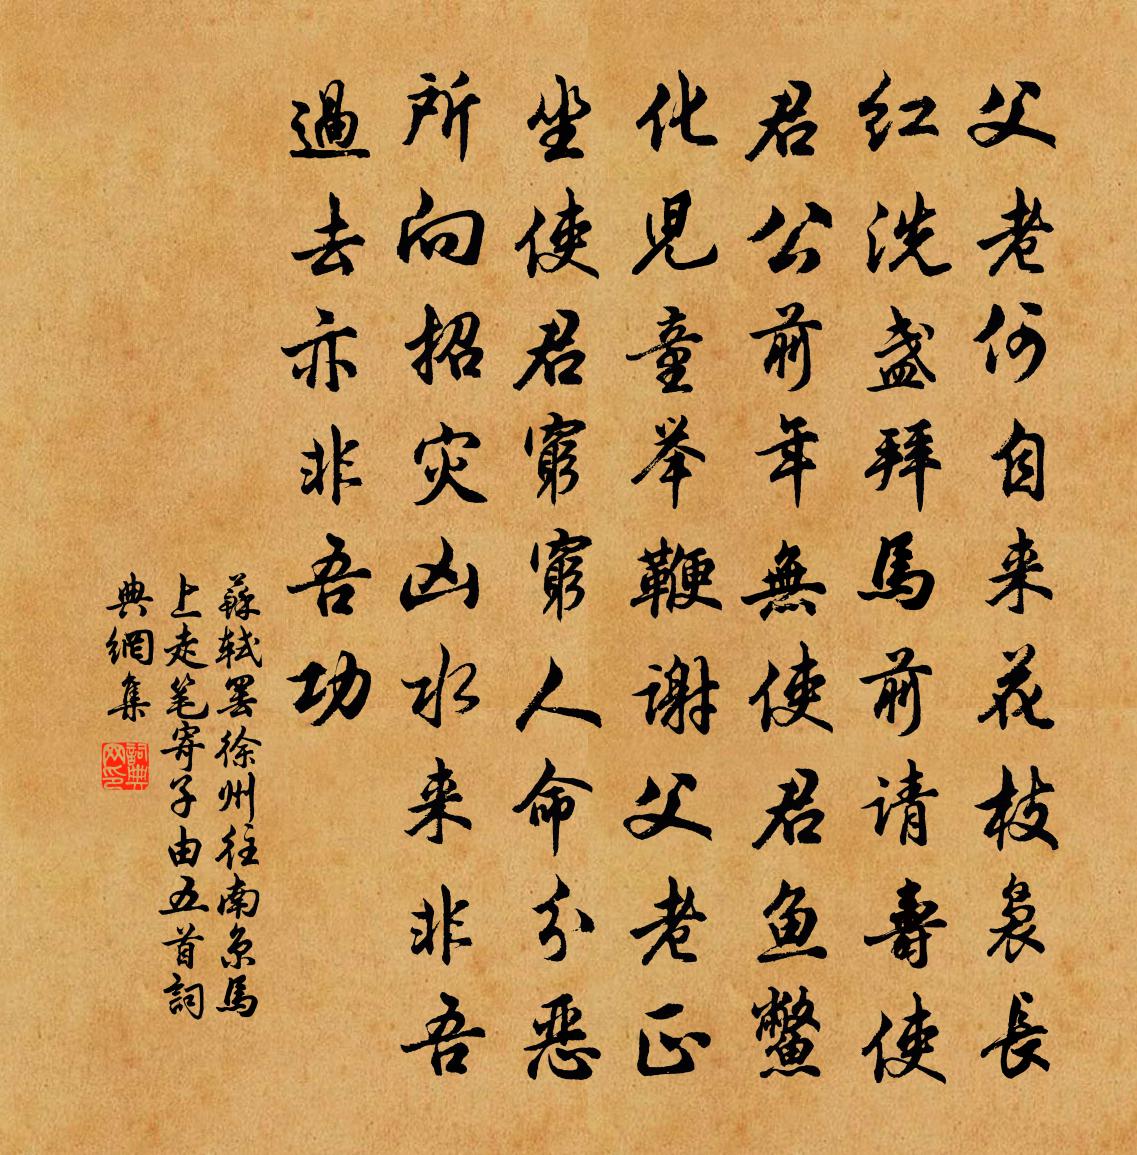 父老何自来花枝袅長
红洗盏拜馬前请壽使
君公前年無使君鱼鱉
化児童举鞭谢父老正
坐使君窮窮人命分恶
所向招灾凶水来非吾
過去亦非吾功
蘇軾罢徐州往南京馬
上走笔寄子由五首詞
典網集
詞典网印